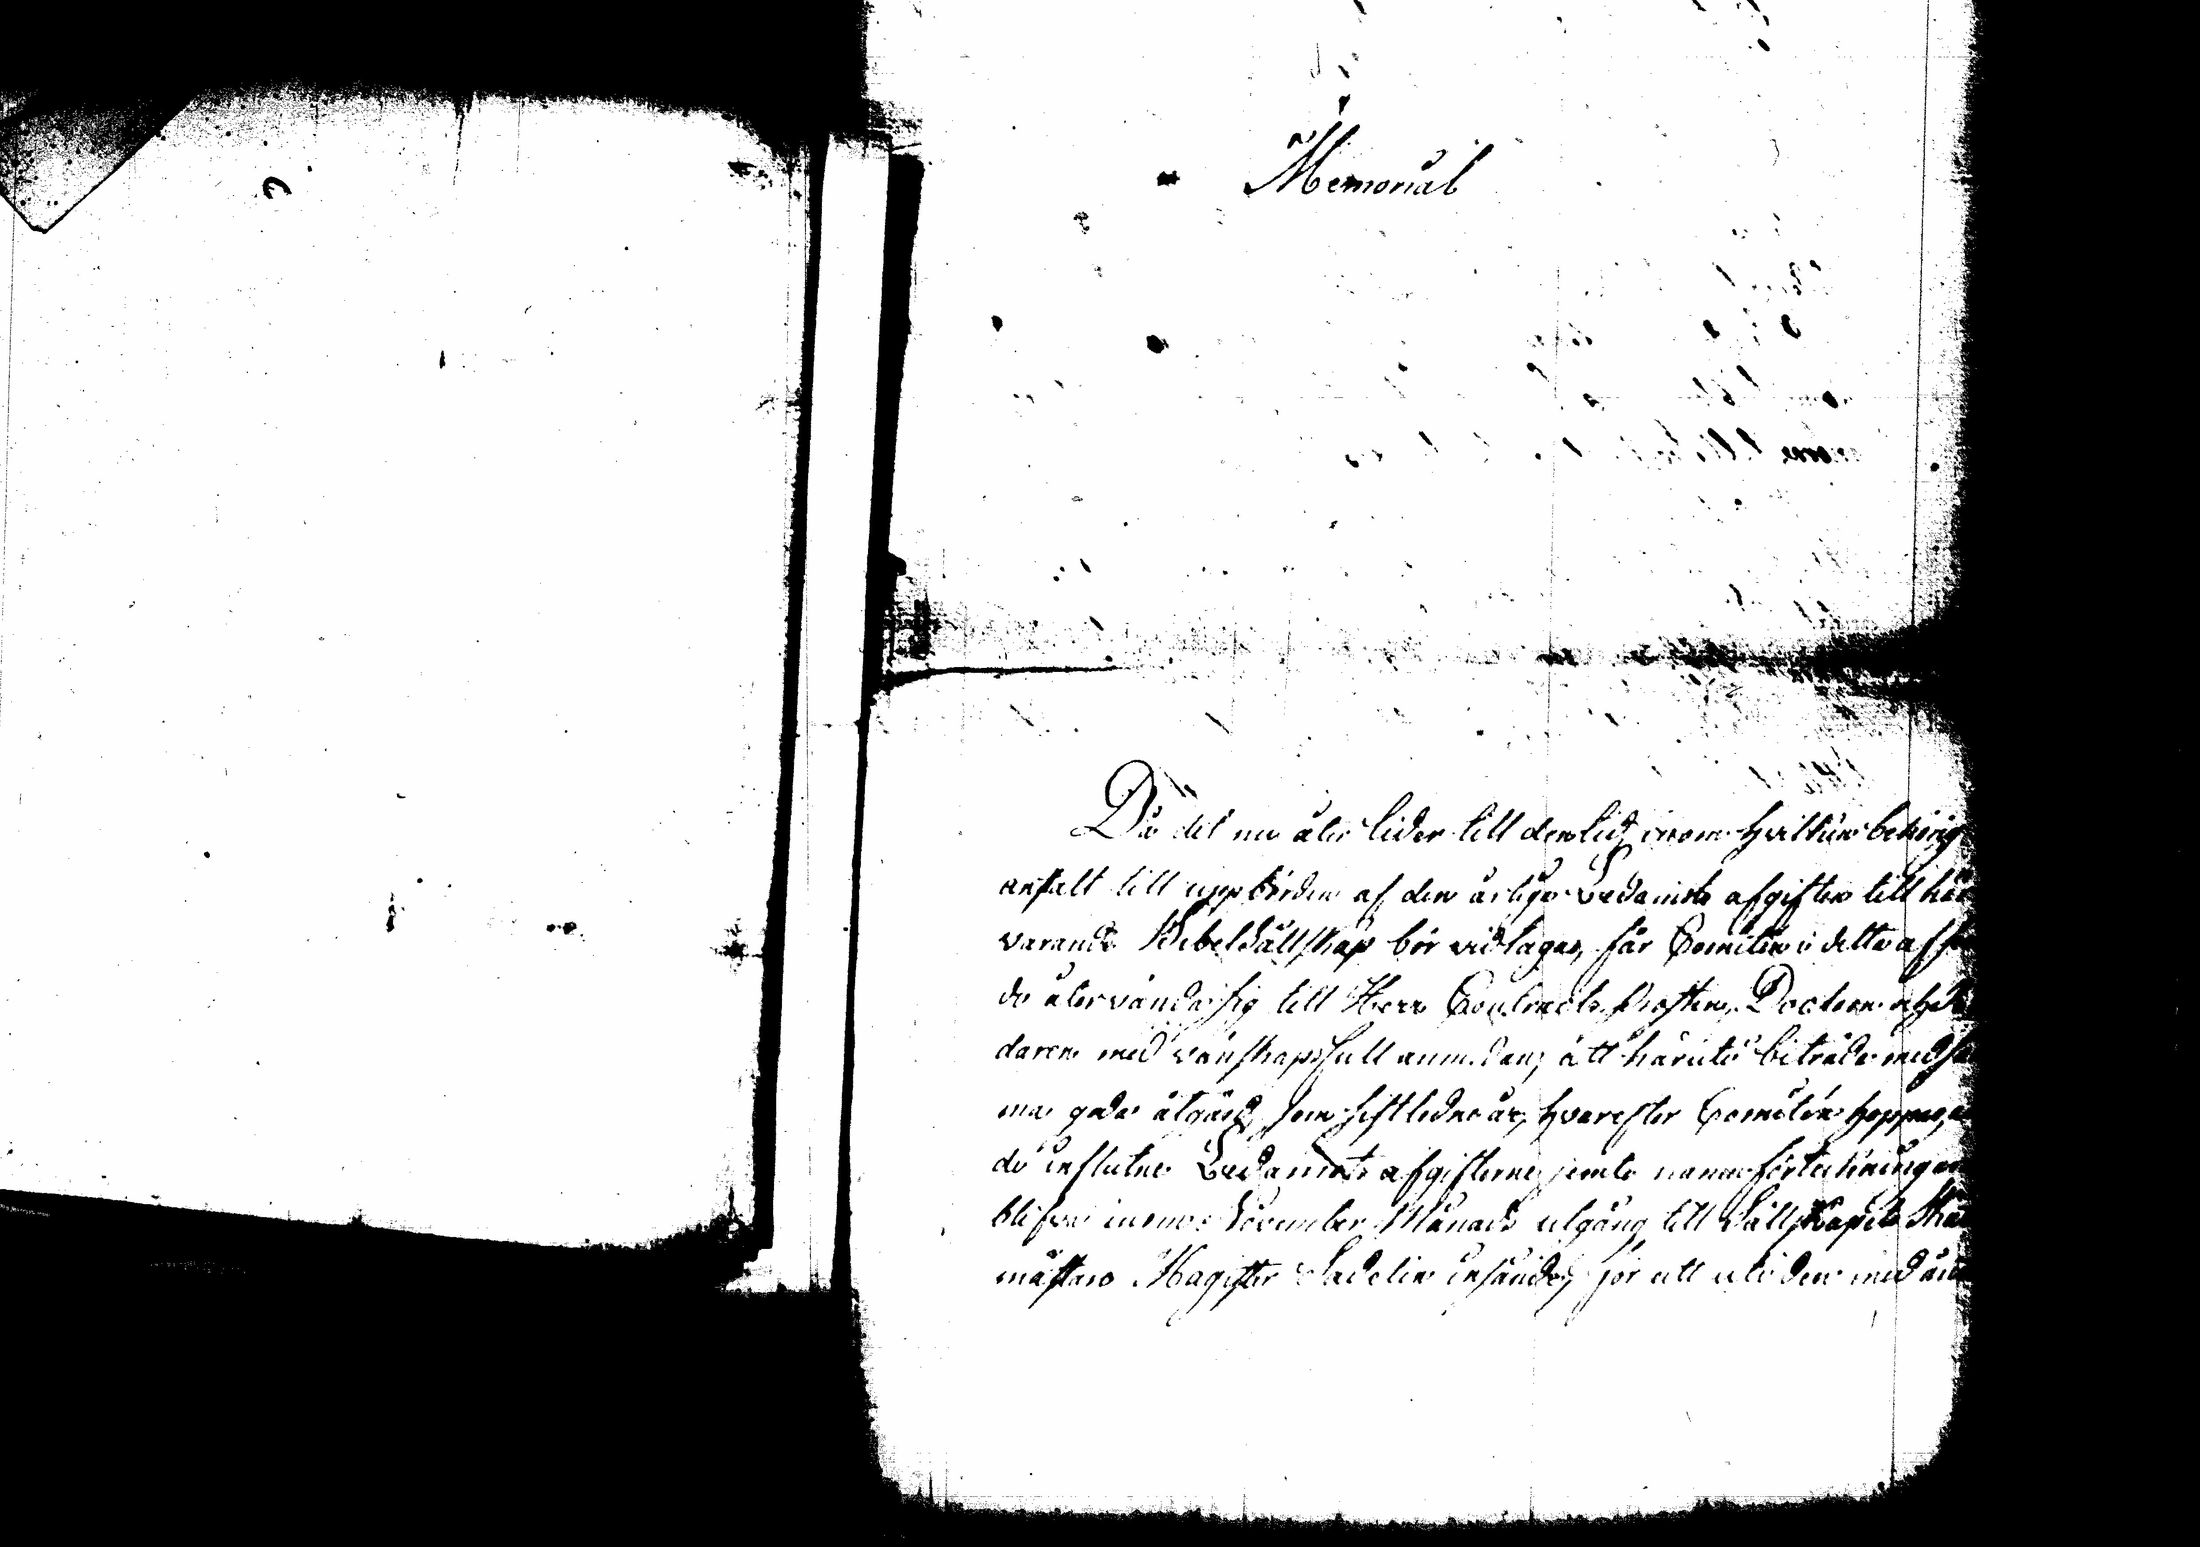 Memorial
Då det nu åter lider till den tid, inom hvilken behörig
anstalt till uppbörden af den årliga Ledamots afgiften till här
varande Bibelsällskap bör vidtagas, får Comitén i detta afse
de återvända sig till Herr Contracts Prosten, Doctorn och
daren med vänskapsfull anmodan, att häruti biträda med sa
ma goda åtgärd, som sistledne år, hvarefter Comitén hoppas, a
de influtne Ledamots afgifterne jemte namnförteckningen
blifva inom November Månads utgång till Sällskapets Ska
mästare Magister Sadelin insände, för att uti den med